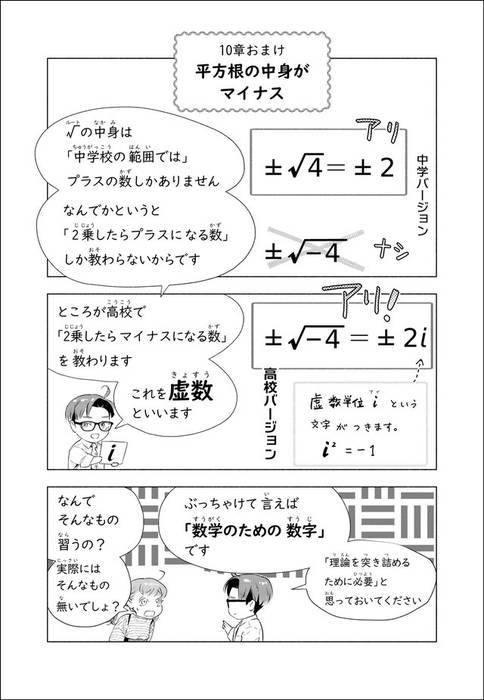 10章おまけ
平方根の中身が
マイナス
√の中身は
「中学校の範囲では」
プラスの数しかありません
なんでかというと
「2乗したらプラスになる数」
しか教わらないからです
アリ
±√4=±2
中学バージョン
±√-4
ナシ
ところが高校で
「2乗したらマイナスになる数」
を教わります
これを虚数
といいます
i
アリ!
±√-4=±2i
高校バージョン
虚数単位iという
文字がつきます。
i²=-1
ぶっちゃけて言えば
「数学のための数字」
です
「理論を突き詰める
ために必要」と
思っておいてください
なんで
そんなもの
習うの?
実際には
そんなもの
無いでしょ?